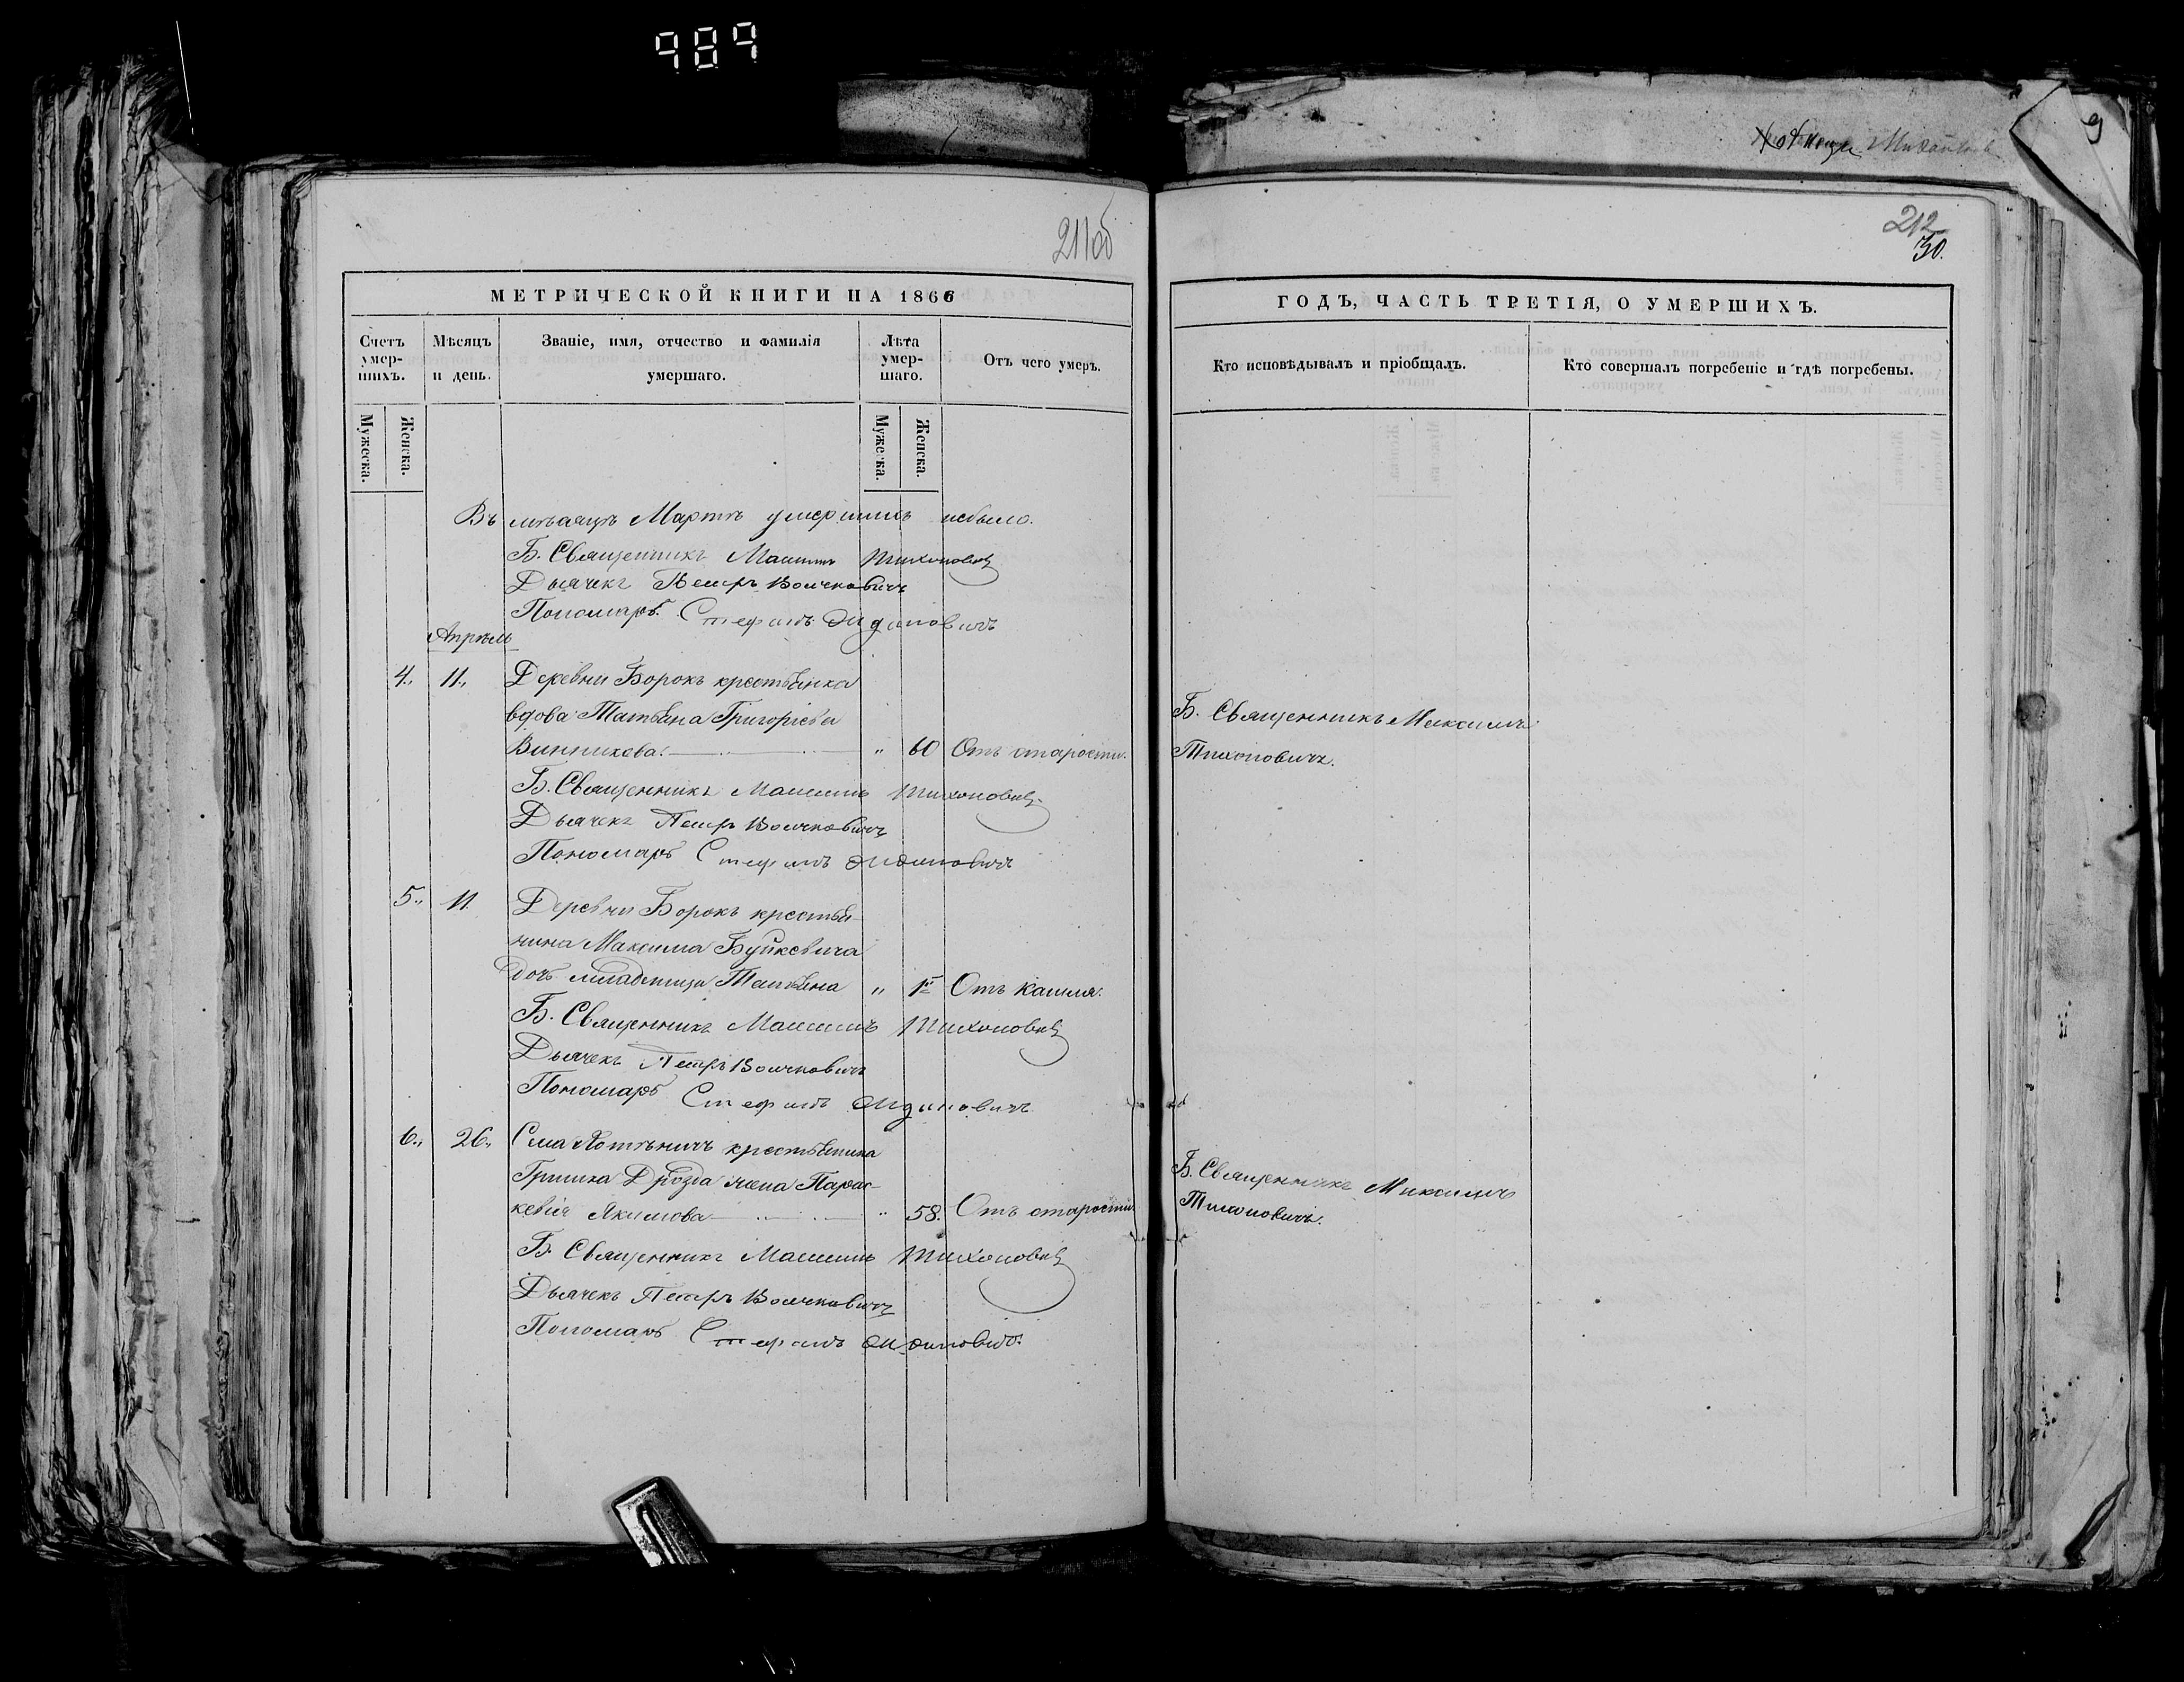 989
9
211об
212
30.
МЕТРИЧЕСКОЙ КНИГИ НА 1866
ГОДЪ, ЧАСТЬ ТРЕТІЯ, О УМЕРШИХЪ.
Счетъ умер-шихъ.
Мѣсяцъ и день.
Званіе, имя, отчество и фамилія умершаго.
Лѣта умер-шаго.
Отъ чего умеръ.
Кто исповѣдывалъ и пріобщалъ.
Кто совершалъ погребеніе и гдѣ погребены.
Мужеска.
Женска.
Мужеска.
Женска.
Въ мѣсяцѣ Мартѣ умершихъ небыло.
Б. Священникъ Максимъ Тихоновичъ
Дьячекъ Петръ Волчковичъ
Пономарь Стефанъ
Апрѣль
4., 11., Деревни Борокъ крестьянка
вдова Татьяна Григоріева
Винникова. " 60 Отъ старости.
Б. Священникъ Максимъ
Тихоновичъ.
Б. Священникъ Максимъ Тихоновичъ
Дьячекъ Петръ Волчковичъ
Пономарь Стефанъ
5., 11. Деревни Борокъ крестья-
нина Максима Буйкевича
дочь младеница Татьяна " 1 г. Отъ кашля.
Б. Священникъ Максимъ Тихоновичъ
Дьячекъ Петръ Волчковичъ
Пономарь Стефанъ
6., 26., Села Хотѣничъ крестьянина
Гришка Дрозда жена Парас-
кевія Якимова " 58. Отъ старости
Б. Священникъ Максимъ
Тихоновичъ.
Б. Священникъ Максимъ Тихоновичъ
Дьячекъ Петръ Волчковичъ
Пономарь Стефанъ